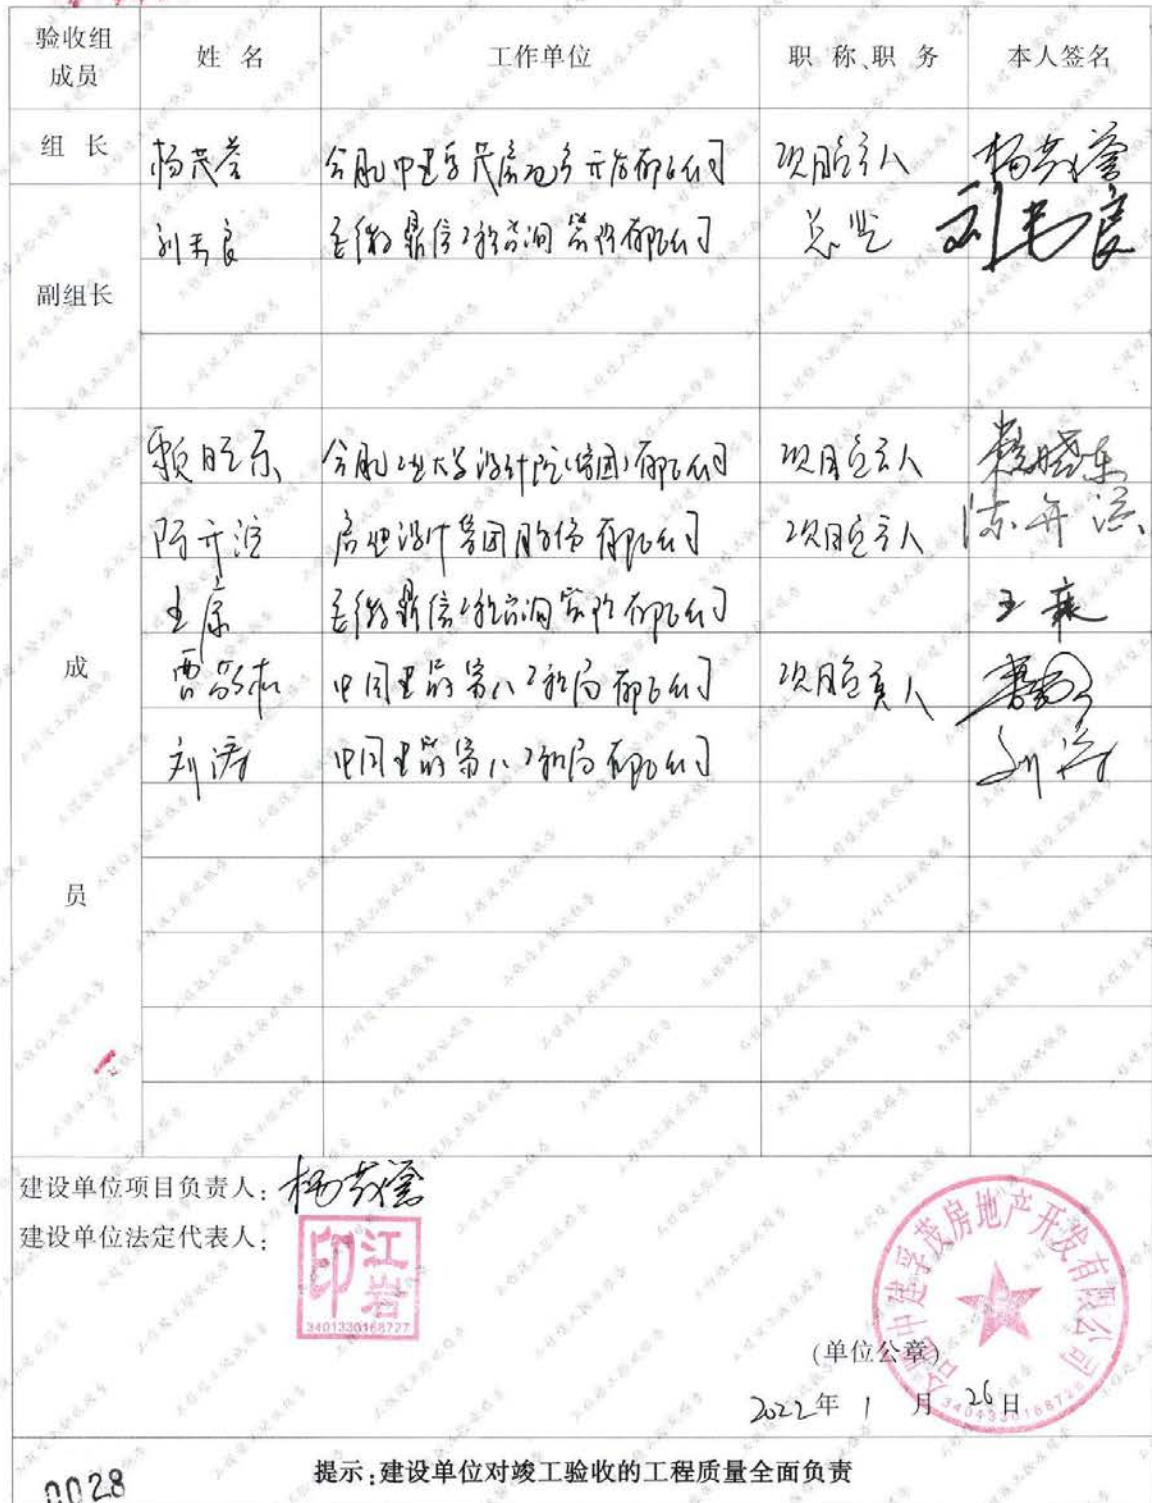 验收组成员 姓名 工作单位 职称、职务 本人签名
组长 杨茂 合肥中建孚茂房地产开发有限公司 项目负责人 杨茂
刘 良 安徽鼎信工程咨询管理有限公司 总监 刘 良
副组长
合肥工业大学设计院(集团)有限公司 项目负责人
启迪设计集团股份有限公司 项目负责人
王康 安徽鼎信工程咨询管理有限公司 王康
成 中国建筑第八工程局有限公司 项目负责人
刘涛 中国建筑第八工程局有限公司 刘涛
员
建设单位项目负责人:杨茂
建设单位法定代表人:
江岩印
3401330168727
合肥中建孚茂房地产开发有限公司
(单位公章)
2022年1月26日
提示:建设单位对竣工验收的工程质量全面负责
0028